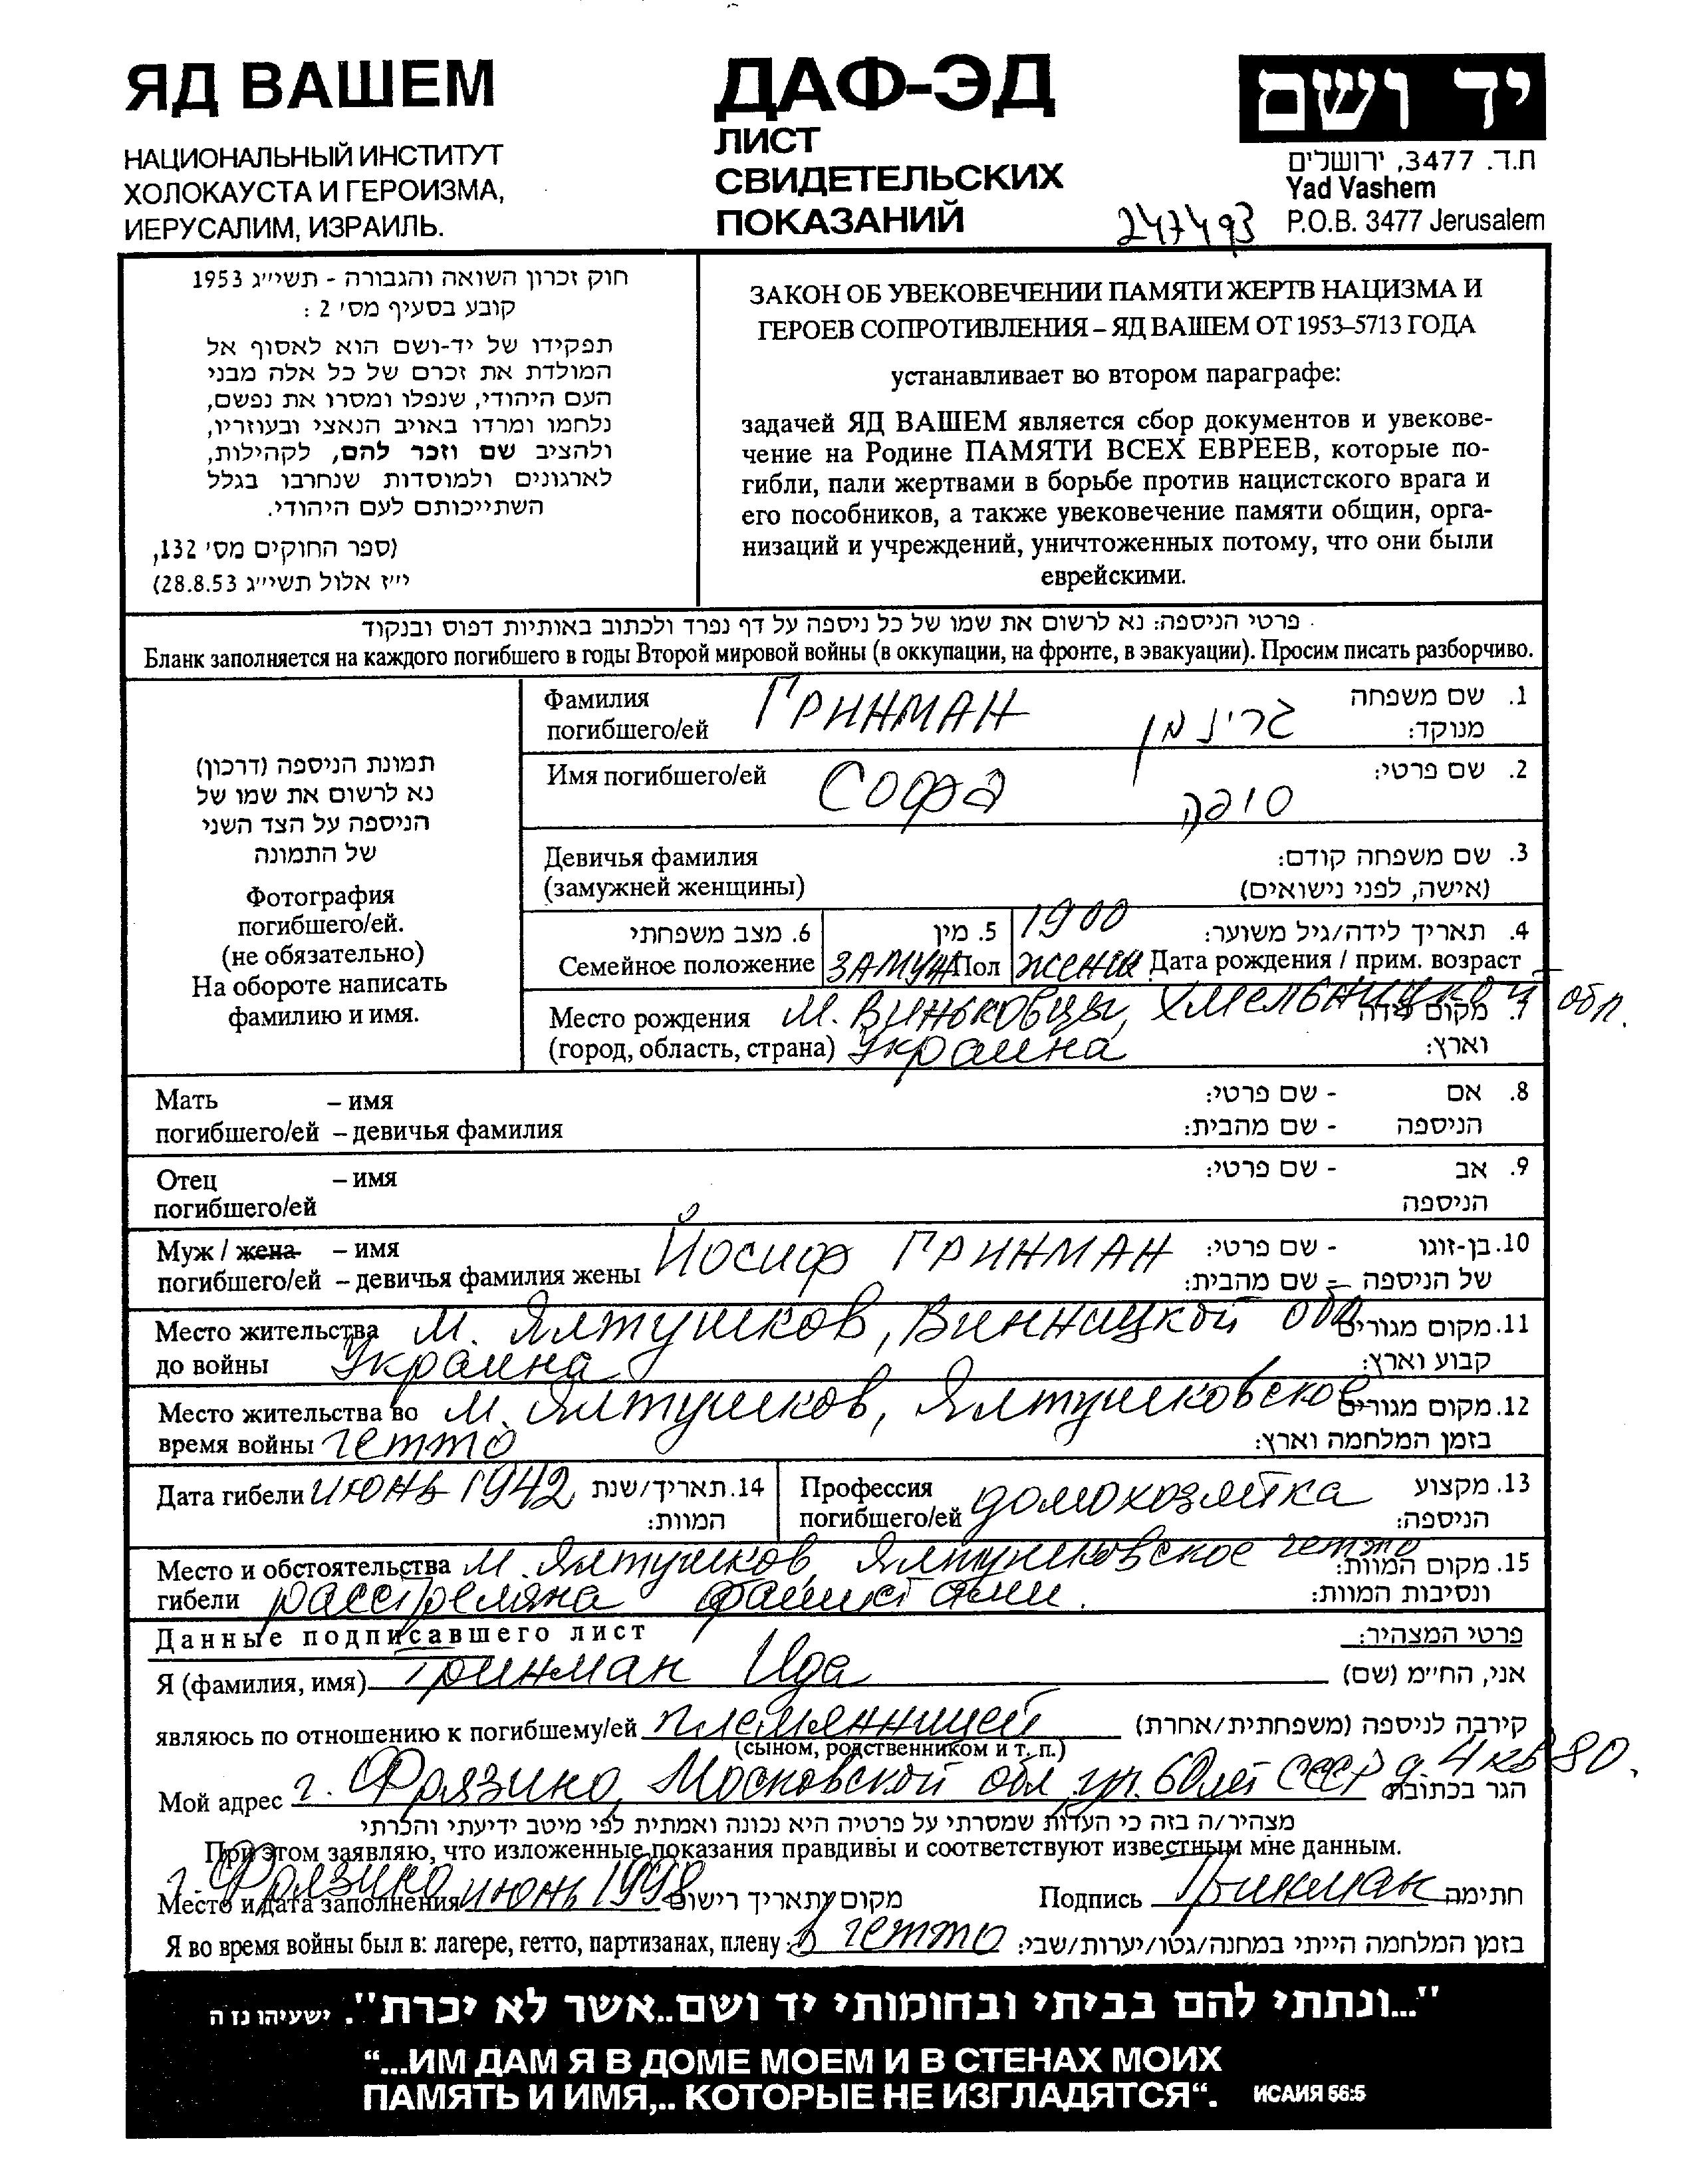 ЯД ВАШЕМ
НАЦИОНАЛЬНЫЙ ИНСТИТУТ
ХОЛОКАУСТА И ГЕРОИЗМА,
ИЕРУСАЛИМ, ИЗРАИЛЬ.
ДАФ-ЭД
ЛИСТ
СВИДЕТЕЛЬСКИХ
ПОКАЗАНИЙ
247493
יד ושם
ת.ד. 3477, ירושלים
Yad Vashem
P.O.B. 3477 Jerusalem
חוק זכרון השואה והגבורה - תשי״ג 1953
קובע בסעיף מס׳ 2 :
תפקידו של יד-ושם הוא לאסוף אל
המולדת את זכרם של כל אלה מבני
העם היהודי, שנפלו ומסרו את נפשם,
נלחמו ומרדו באויב הנאצי ובעוזריו,
ולהציב שם וזכר להם, לקהילות,
לארגונים ולמוסדות שנחרבו בגלל
השתייכותם לעם היהודי.
(ספר החוקים מס׳ 132,
י״ז אלול תשי״ג 28.8.53)
ЗАКОН ОБ УВЕКОВЕЧЕНИИ ПАМЯТИ ЖЕРТВ НАЦИЗМА И
ГЕРОЕВ СОПРОТИВЛЕНИЯ – ЯД ВАШЕМ ОТ 1953–5713 ГОДА
устанавливает во втором параграфе:
задачей ЯД ВАШЕМ является сбор документов и увекове-
чение на Родине ПАМЯТИ ВСЕХ ЕВРЕЕВ, которые по-
гибли, пали жертвами в борьбе против нацистского врага и
его пособников, а также увековечение памяти общин, орга-
низаций и учреждений, уничтоженных потому, что они были
еврейскими.
פרטי הניספה: נא לרשום את שמו של כל ניספה על דף נפרד ולכתוב באותיות דפוס ובנקוד
Бланк заполняется на каждого погибшего в годы Второй мировой войны (в оккупации, на фронте, в эвакуации). Просим писать разборчиво.
תמונת הניספה (דרכון)
נא לרשום את שמו של
הניספה על הצד השני
של התמונה
Фотография
погибшего/ей.
(не обязательно)
На обороте написать
фамилию и имя.
Фамилия ГРИНМАН גרינמן 1. שם משפחה
погибшего/ей מנוקד:
Имя погибшего/ей СОФА סופה 2. שם פרטי:
Девичья фамилия 3. שם משפחה קודם:
(замужней женщины) (אישה, לפני נישואים)
6. מצב משפחתי 5. מין 1900 4. תאריך לידה/גיל משוער:
Семейное положение ЗАМУЖ Пол ЖЕНск Дата рождения / прим. возраст
Место рождения м. Виньковцы, Хмельницкой обл. 7. מקום לידה
(город, область, страна) Украина וארץ:
Мать – имя - שם פרטי: 8. אם
погибшего/ей – девичья фамилия - שם מהבית: הניספה
Отец – имя - שם פרטי: 9. אב
погибшего/ей הניספה
Муж / жена – имя Йосиф ГРИНМАН - שם פרטי: 10. בן-זוגו
погибшего/ей – девичья фамилия жены - שם מהבית: של הניספה
Место жительства м. Ялтушков, Винницкой обл 11. מקום מגורים
до войны Украина קבוע וארץ:
Место жительства во м. Ялтушков, Ялтушковское 12. מקום מגורים
время войны гетто בזמן המלחמה וארץ:
Дата гибели ИЮНЬ 1942 14. תאריך/שנת Профессия домохозяйка 13. מקצוע
המוות: погибшего/ей הניספה:
Место и обстоятельства м. Ялтушков, Ялтушковское гетто 15. מקום המוות:
гибели расстреляна фашистами. ונסיבות המוות:
Данные подписавшего лист פרטי המצהיר:
Я (фамилия, имя) Гринман Ида אני, הח״מ (שם)
являюсь по отношению к погибшему/ей племянницей קירבה לניספה (משפחתית/אחרת)
(сыном, родственником и т. п.)
Мой адрес г. Фрязино, Московской обл, ул. 60 лет СССР д. 4 кв 80. הגר בכתובת
מצהיר/ה בזה כי העדות שמסרתי על פרטיה היא נכונה ואמתית לפי מיטב ידיעתי והכרתי
При этом заявляю, что изложенные показания правдивы и соответствуют известным мне данным.
г. Фрязино
Место и дата заполнения июнь 1998 מקום ותאריך רישום Подпись Гринман חתימה
Я во время войны был в: лагере, гетто, партизанах, плену: в гетто בזמן המלחמה הייתי במחנה/גטו/יערות/שבי:
"...ונתתי להם בביתי ובחומותי יד ושם..אשר לא יכרת". ישעיהו נו ה
“...ИМ ДАМ Я В ДОМЕ МОЕМ И В СТЕНАХ МОИХ
ПАМЯТЬ И ИМЯ,.. КОТОРЫЕ НЕ ИЗГЛАДЯТСЯ“. ИСАИЯ 56:5